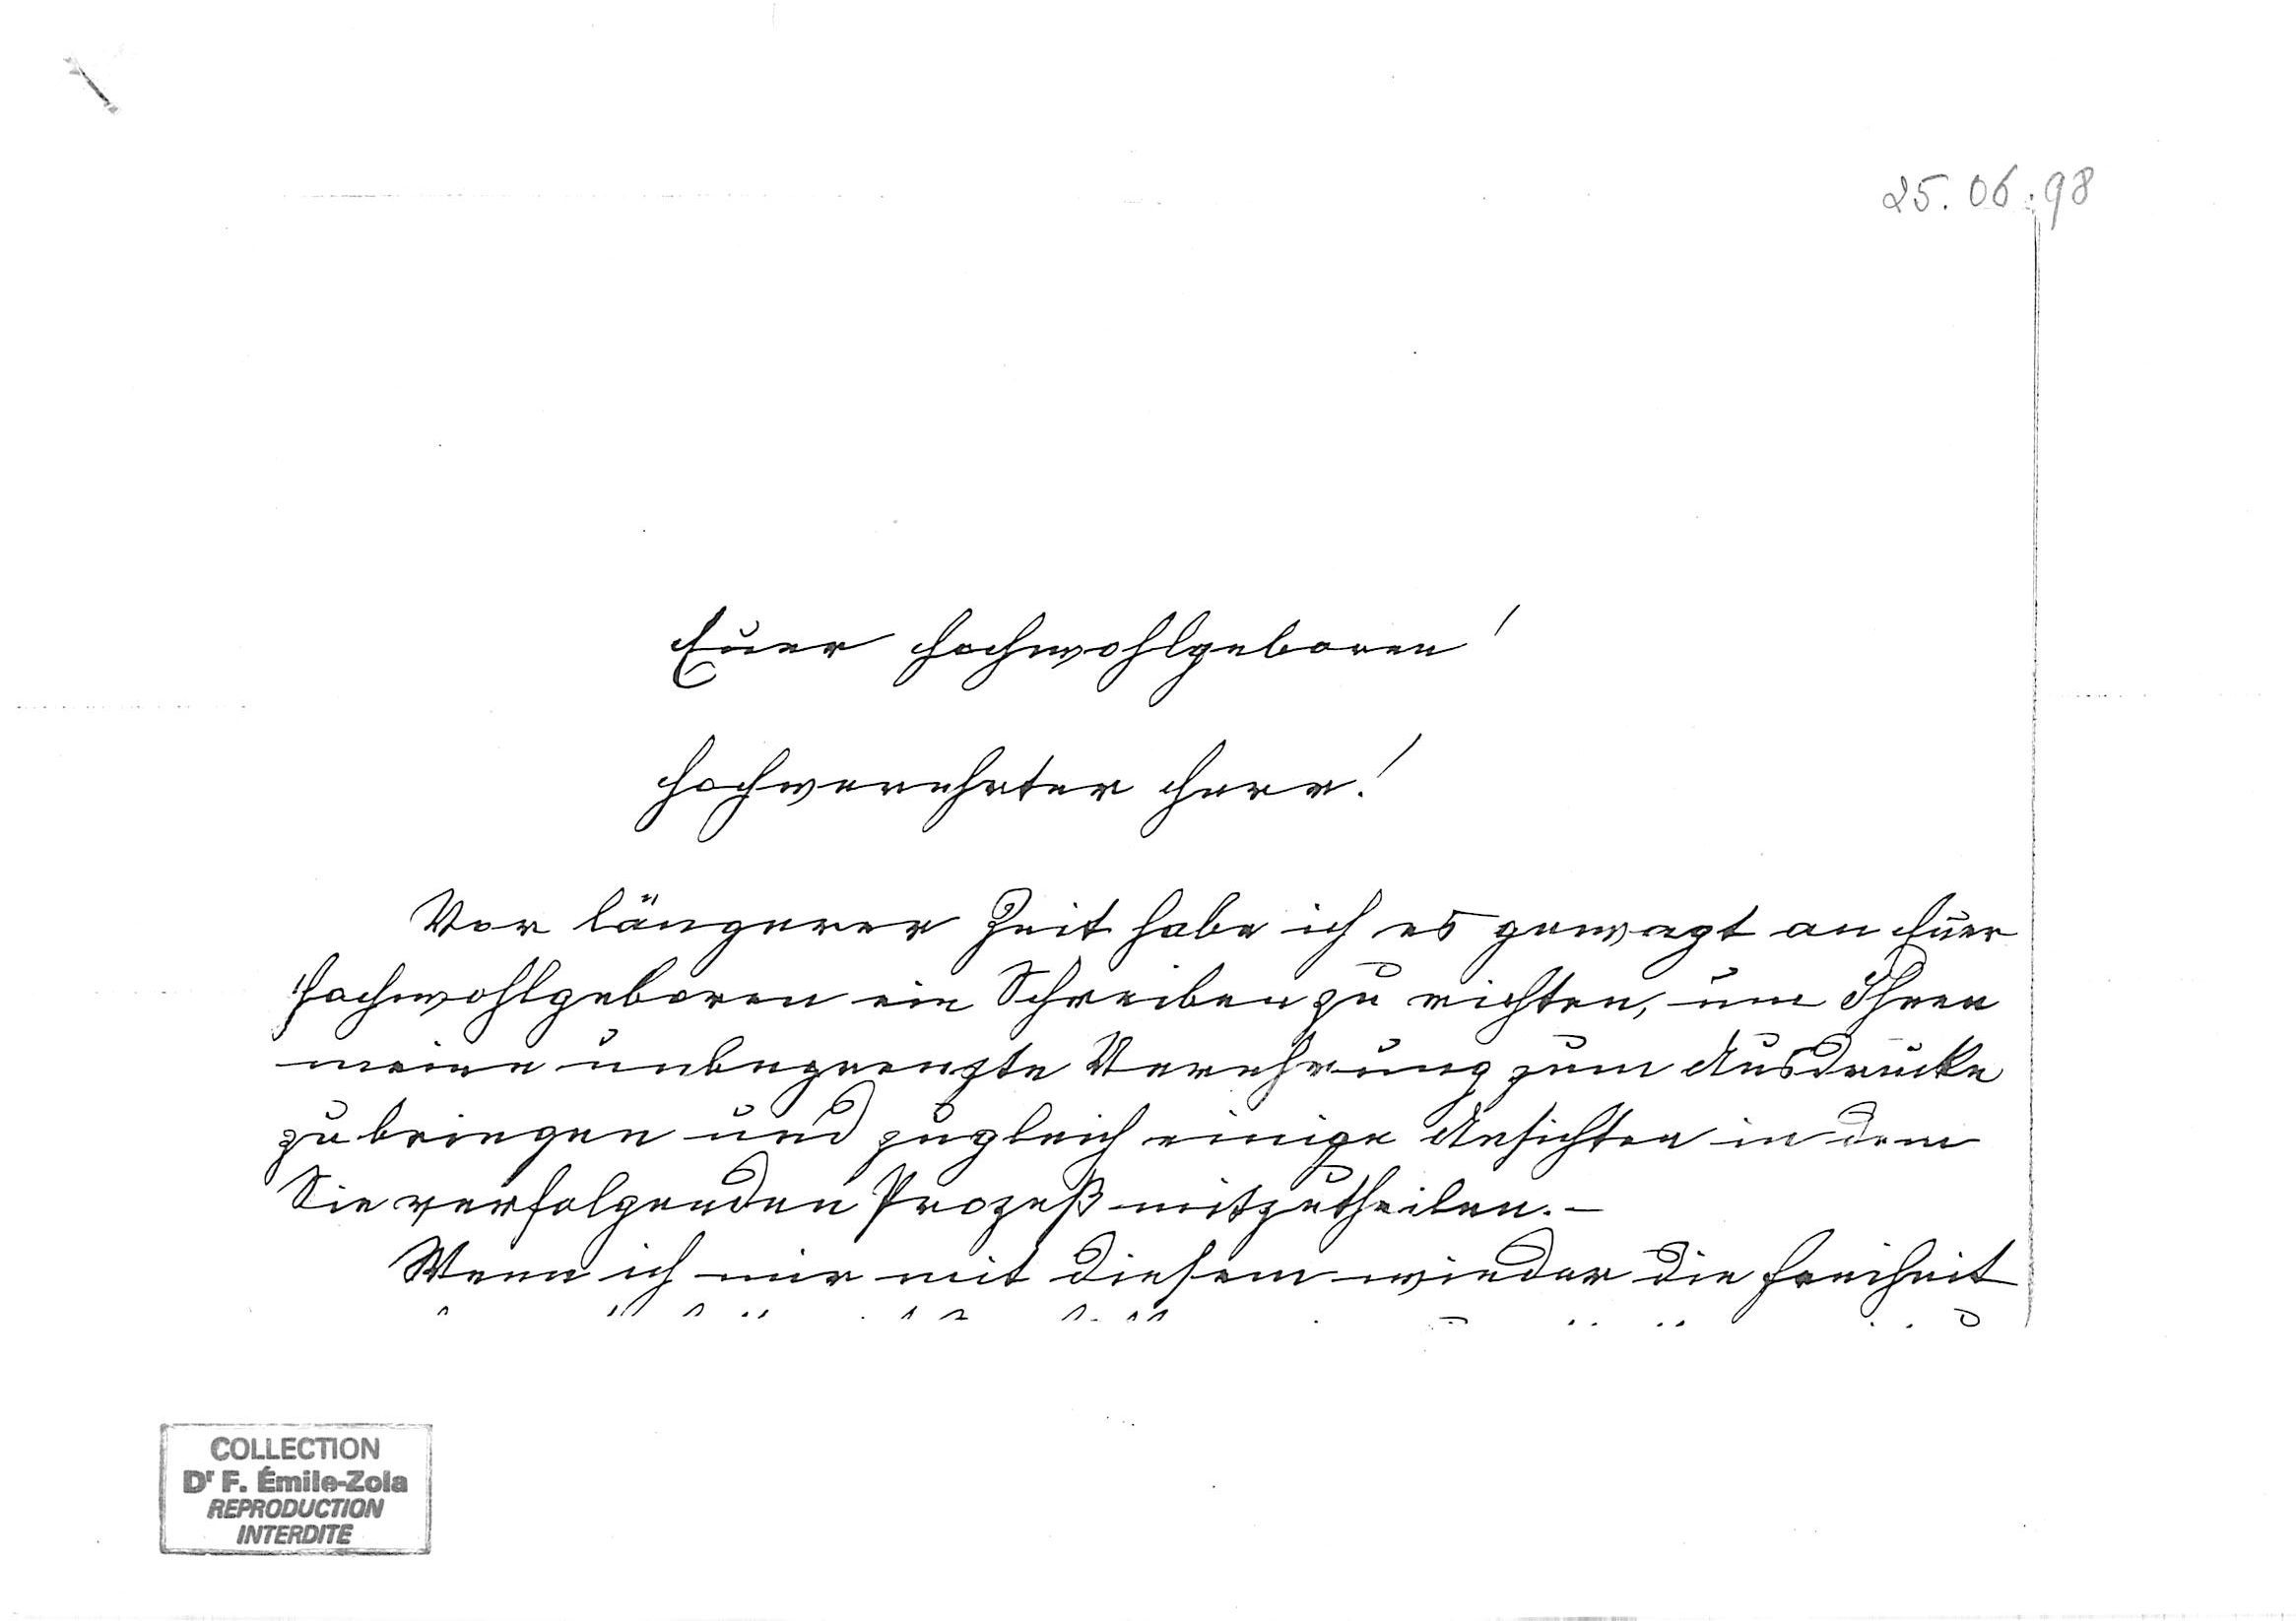 25.06.98
Euer Hochwohlgeboren!
Hochverehrter Herr!
Vor längerer Zeit habe ich es gewagt an Euer
Hochwohlgeboren ein Schreiben zu richten, um Ihnen
meine unbegrenzte Verehrung zum Ausdrucke
zu bringen und zugleich einige Ansichten in dem
Sie verfolgenden Prozeß mitzutheilen. –
Wenn ich mir mit diesem wieder die Freiheit
COLLECTION
Dr F. Émile-Zola
REPRODUCTION
INTERDITE